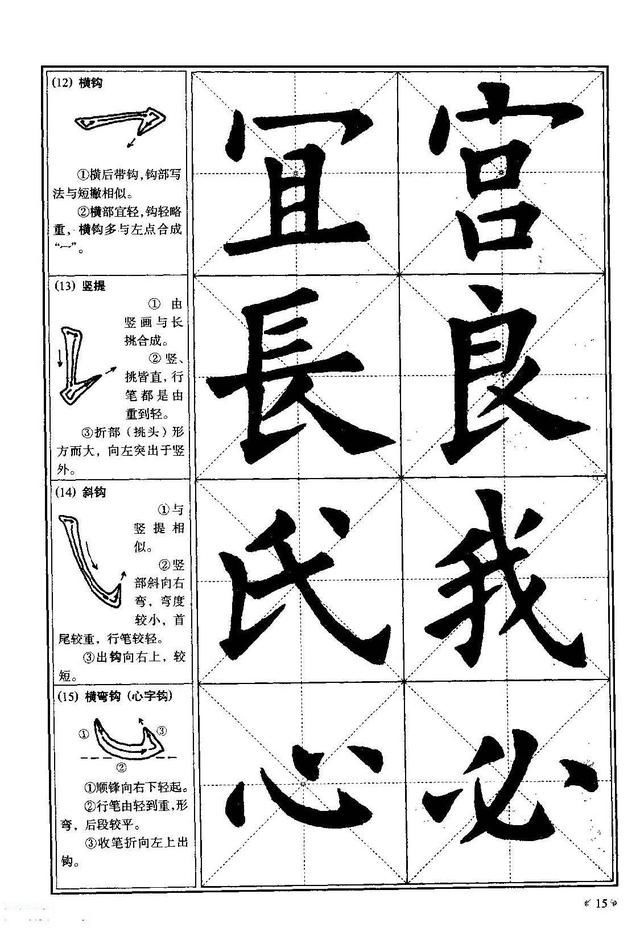 (12) 横钩
①横后带钩,钩部写
法与短撇相似。
②横部宜轻,钩轻略
重,横钩多与左点合成
“冖”。
冝 宫
(13) 竖提
① 由
竖画与长
挑合成。
②竖、
挑皆直,行
笔都是由
重到轻。
③折部(挑头)形
方而大,向左突出于竖
外。
長 良
(14) 斜钩
①与
竖提相
似。
②竖
部斜向右
弯,弯度
较小,首
尾较重,行笔较轻。
③出钩向右上,较
短。
氏 我
(15) 横弯钩(心字钩)
① ③
②
①顺锋向右下轻起。
②行笔由轻到重,形
弯,后段较平。
③收笔折向左上出
钩。
心 必
15